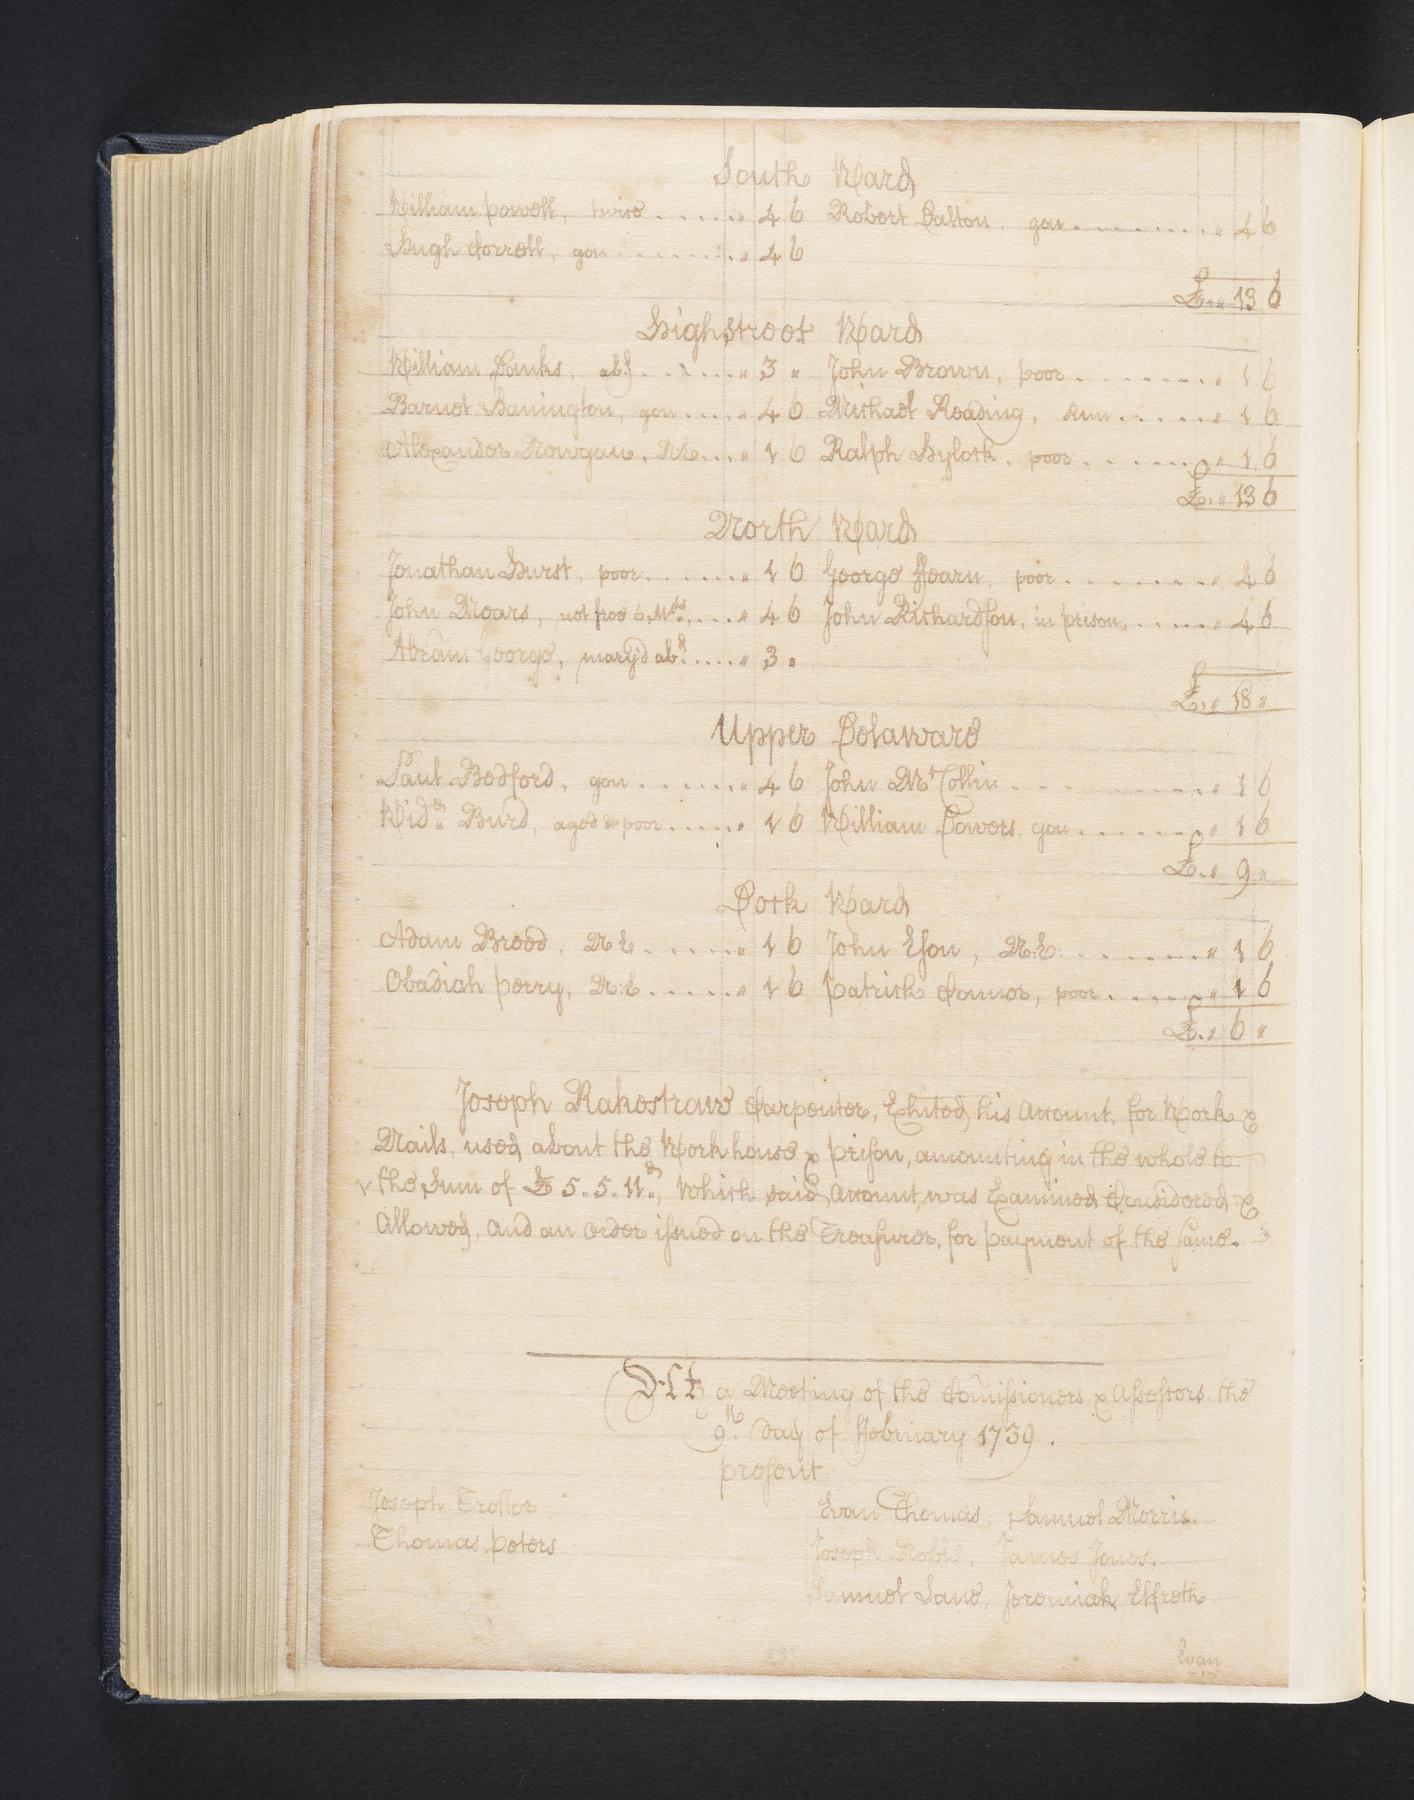 South Ward
William Powell, twice ...... " 4 6 Robert Dalton, gon ......... " 4 6
Hugh Correll, gon ........ " 4 6
£ . " 13 6
Highstreet Ward
William Danks, abs.d ...... " 3 " John Brown, poor ......... " 1 6
Barnet Hanington, gon .... " 4 6 Michael Reading, Run ...... " 1 6
Alexander Mowgan, N E ... " 1 6 Ralph Hylock, poor ....... " 1 6
£ . " 13 6
North Ward
Jonathan Hurst, poor ...... " 1 6 George Hearn, poor ........ " 4 6
John Mears, not free 6 M.ths .... " 4 6 John Richardson, in prison, ..... " 4 6
Abram George, marry'd ab.d ..... " 3 "
£ . " 18 "
Upper Delaware
Paul Bedford, gon ...... " 4 6 John McCollin .......... " 1 6
Wid.w Burd, aged & poor ..... " 1 6 William Powers, gon ....... " 1 6
£ . " 9 "
Dock Ward
Adam Breed, N E ...... " 1 6 John Eson, N:E: ......... " 1 6
Obadiah Perry, N:E ...... " 1 6 Patrick Connor, poor ...... " 1 6
£ . " 6 "
Joseph Rakestraw Carpenter, Exhited his Account, for Work &
Nails, used about the Workhouse & Prison, amounting in the whole to
the Sum of £ 5. 5. 11.d, Which said Account, was Examined Considered &
Allowed, and an Order issued on the Treasurer, for payment of the same.
At a Meeting of the Comissioners & Assessors the
9.th Day of February 1739.
present
Joseph Trotter Evan Thomas, Samuel Morris
Thomas Peters Joseph Noble, James Jones.
Samuel Lane, Jeremiah Elfreth
Evan